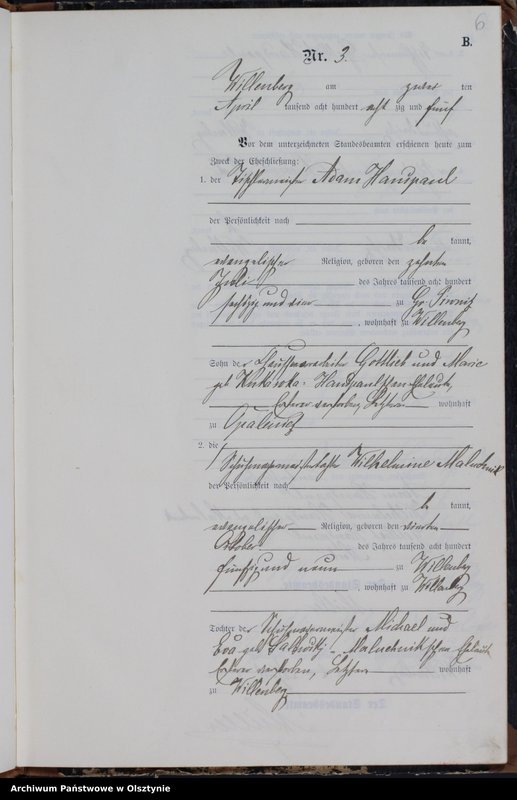 6
B.
Nr. 3.
Willenberg am zwei ten
April tausend acht hundert acht zig und fünf
Vor dem unterzeichneten Standesbeamten erschienen heute zum
Zweck der Eheschließung:
1. der Tischlermeister Adam Hanspaul
der Persönlichkeit nach
be kannt,
evangelischer Religion, geboren den zehnten
Juli des Jahres tausend acht hundert
sechszig und zu Gr.
, wohnhaft zu Willenberg
Sohn der Gottlieb und Marie
geb. Hanspaulschen Eheleute,
Ersterer verstorben, Letztere wohnhaft
zu Opalenietz
2. die Schuhmachermeistertochter Wilhelmine Maluchnik
der Persönlichkeit nach
be kannt,
evangelischer Religion, geboren den vierten
Oktober des Jahres tausend acht hundert
fünfzig und neun zu Willenberg
, wohnhaft zu Willenberg
Tochter der Schuhmachermeister Michael und
Eva geb. Maluchnikschen Eheleute
Ersterer verstorben, Letztere wohnhaft
zu Willenberg
Archiwum Państwowe w Olsztynie